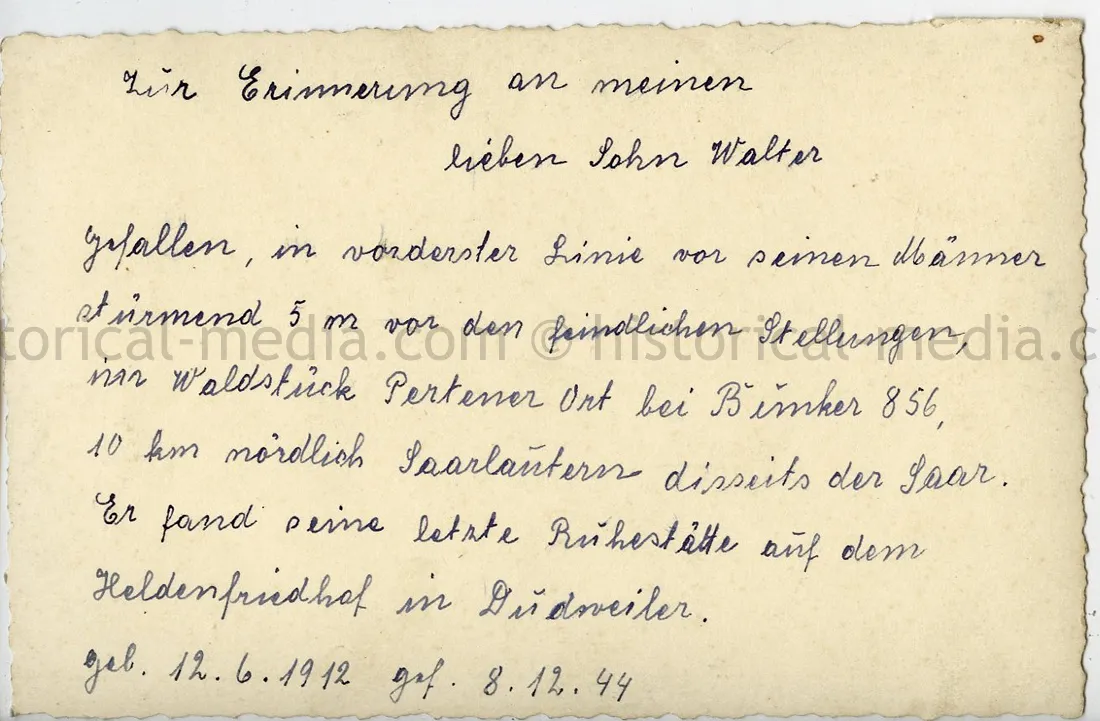 Zur Erinnerung an meinen
lieben Sohn Walter
Gefallen, in vorderster Linie vor seinen Männer
stürmend 5 m vor den feindlichen Stellungen,
im Waldstück Pertener Ort bei Bunker 856,
10 km nördlich Saarlautern disseits der Saar.
Er fand seine letzte Ruhestätte auf dem
Heldenfriedhof in Dudweiler.
geb. 12.6.1912 gef. 8.12.44
historical-media.com © historical-media.c